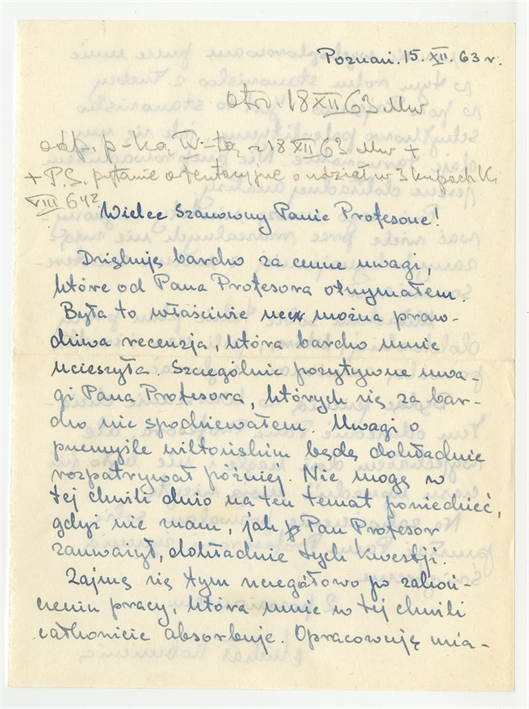 Poznań. 15. XII. 63 r.
otrz. 18 XII 63 Mw
odp. p-ką W-tą, 18 XII 63 Mw +
+ P.S. pytanie o w 3
VIII 64?
Wielce Szanowny Panie Profesorze!
Dziękuję bardzo za cenne uwagi,
które od Pana Profesora otrzymałem.
Była to właściwie można praw-
dziwa recenzja, która bardzo mnie
ucieszyła. Szczególnie pozytywne uwa-
gi Pana Profesora, których się za bar-
dzo nie spodziewałem. Uwagi o
przemyśle wiktoriskim będę dokładnie
rozpatrywał później. Nie mogę w
tej chwili dużo na ten temat powiedzieć,
gdyż nie znam, jak Pan Profesor
zauważył, dokładnie tych kwestji.
Zajmę się tym szczegółowo po zakoń-
czeniu pracy, która mnie w tej chwili
całkowicie absorbuje. Opracowuję mia-